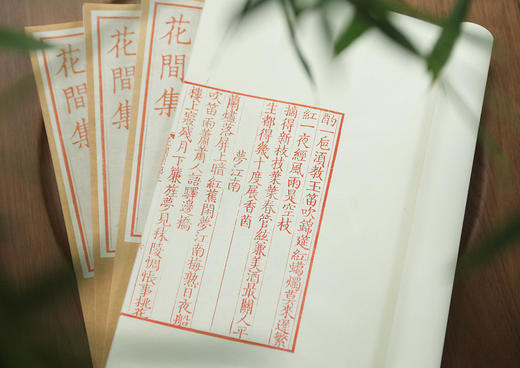 花間集
花間集
花間集
酌一巵須教玉笛吹錦筵紅蠟燭莫來遲繁
紅一夜經風雨是空枝
摘得新枝枝葉葉春管絃兼美酒最關人平
生都得幾十度展香茵
夢江南
蘭燼落屏上暗紅蕉閑夢江南梅熟日夜船
吹笛雨蕭蕭人語驛邊橋
樓上寢殘月下簾旌夢見秣陵惆悵事桃花